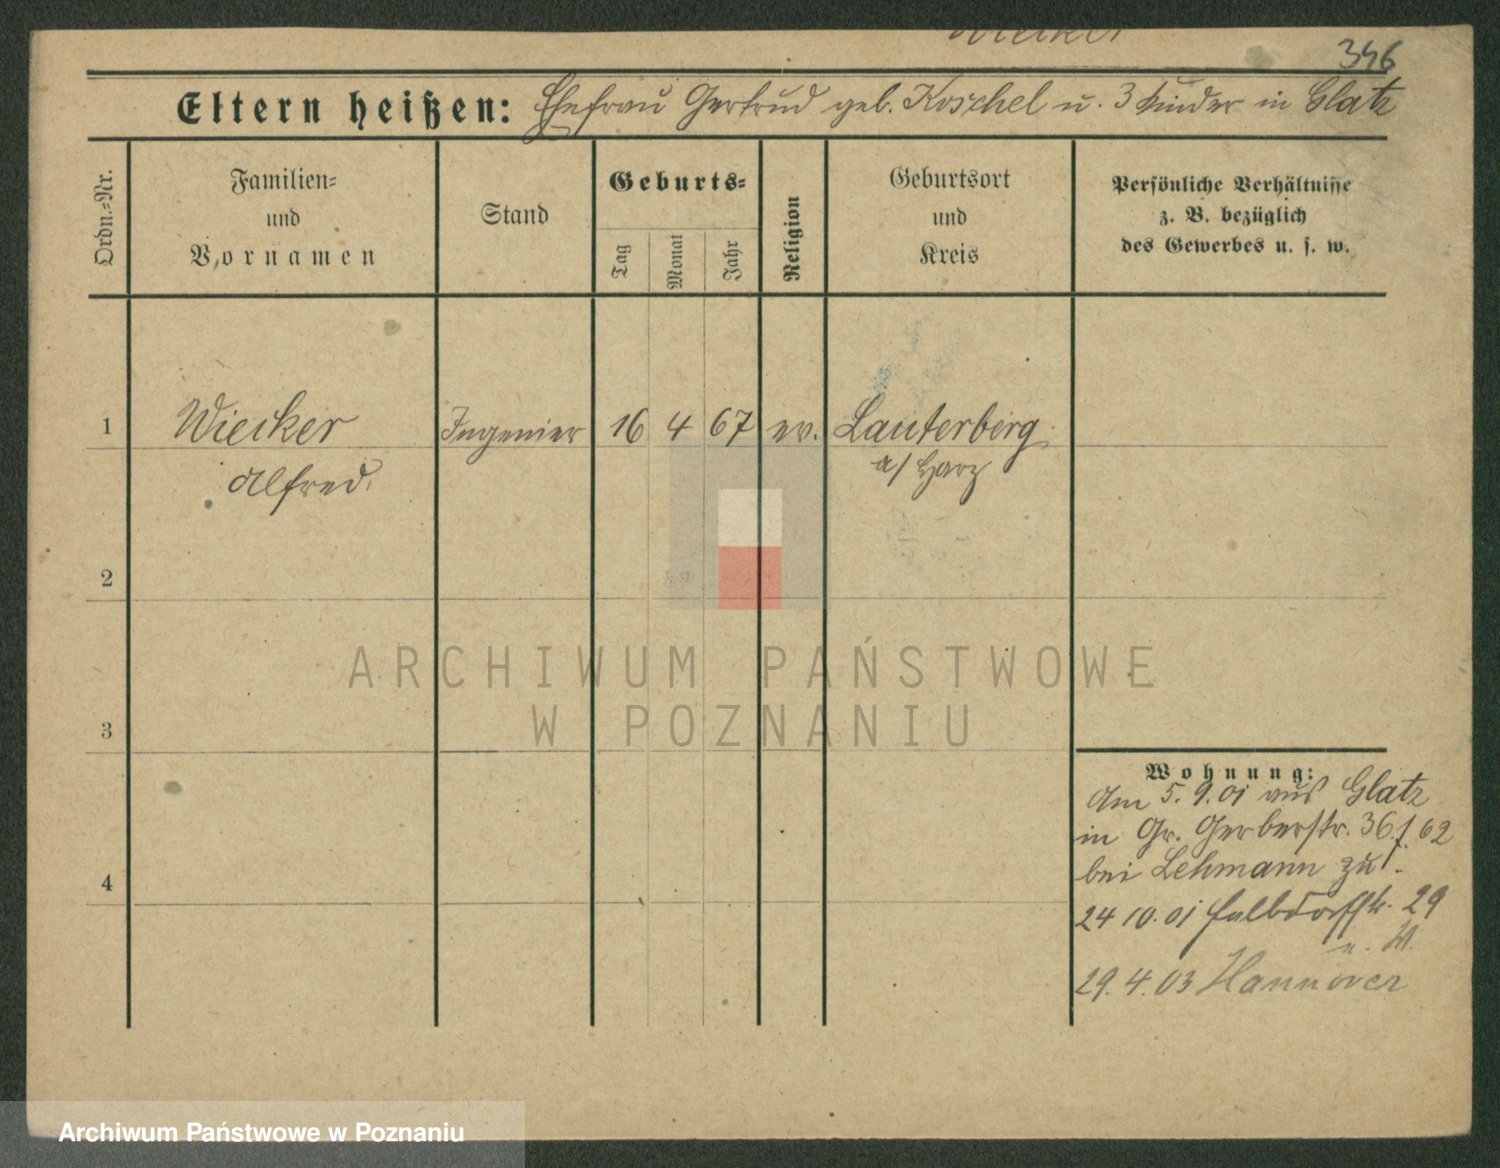 Wiecker
346
Eltern heißen: Ehefrau Gertrud geb. Koschel u. 3 Kinder in Glatz
Ordn.-Nr.
Familien-
und
Vornamen
Stand
Geburts-
Tag
Monat
Jahr
Religion
Geburtsort
und
Kreis
Persönliche Verhältnisse
z. B. bezüglich
des Gewerbes u. s. w.
1 Wiecker Ingenier 16 4 67 ev. Lauterberg
Alfred. a/ Harz
2
3
4
Wohnung:
Am 5.9.01 aus Glatz
in Gr. Gerberstr. 36
bei Lehmann zu
24 10.01 29
29.4.03 Hannover
ARCHIWUM PAŃSTWOWE
W POZNANIU
Archiwum Państwowe w Poznaniu